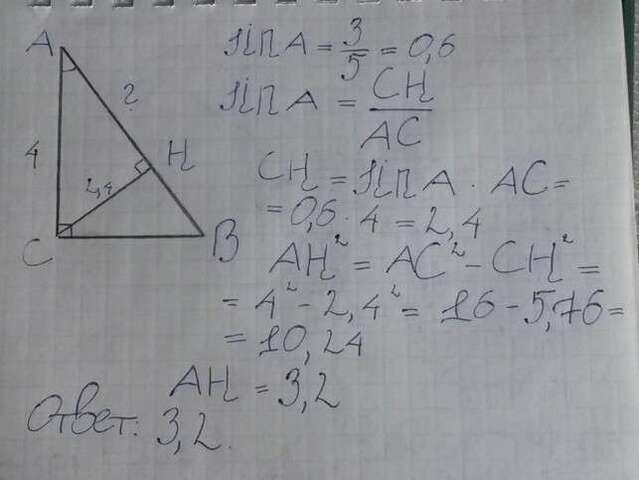 A
?
4
H
2,4
C
B
sin A = 3/5 = 0,6
sin A = CH/AC
CH = sin A · AC =
= 0,6 · 4 = 2,4
AH² = AC² - CH² =
= 4² - 2,4² = 16 - 5,76 =
= 10,24
AH = 3,2
Ответ: 3,2.